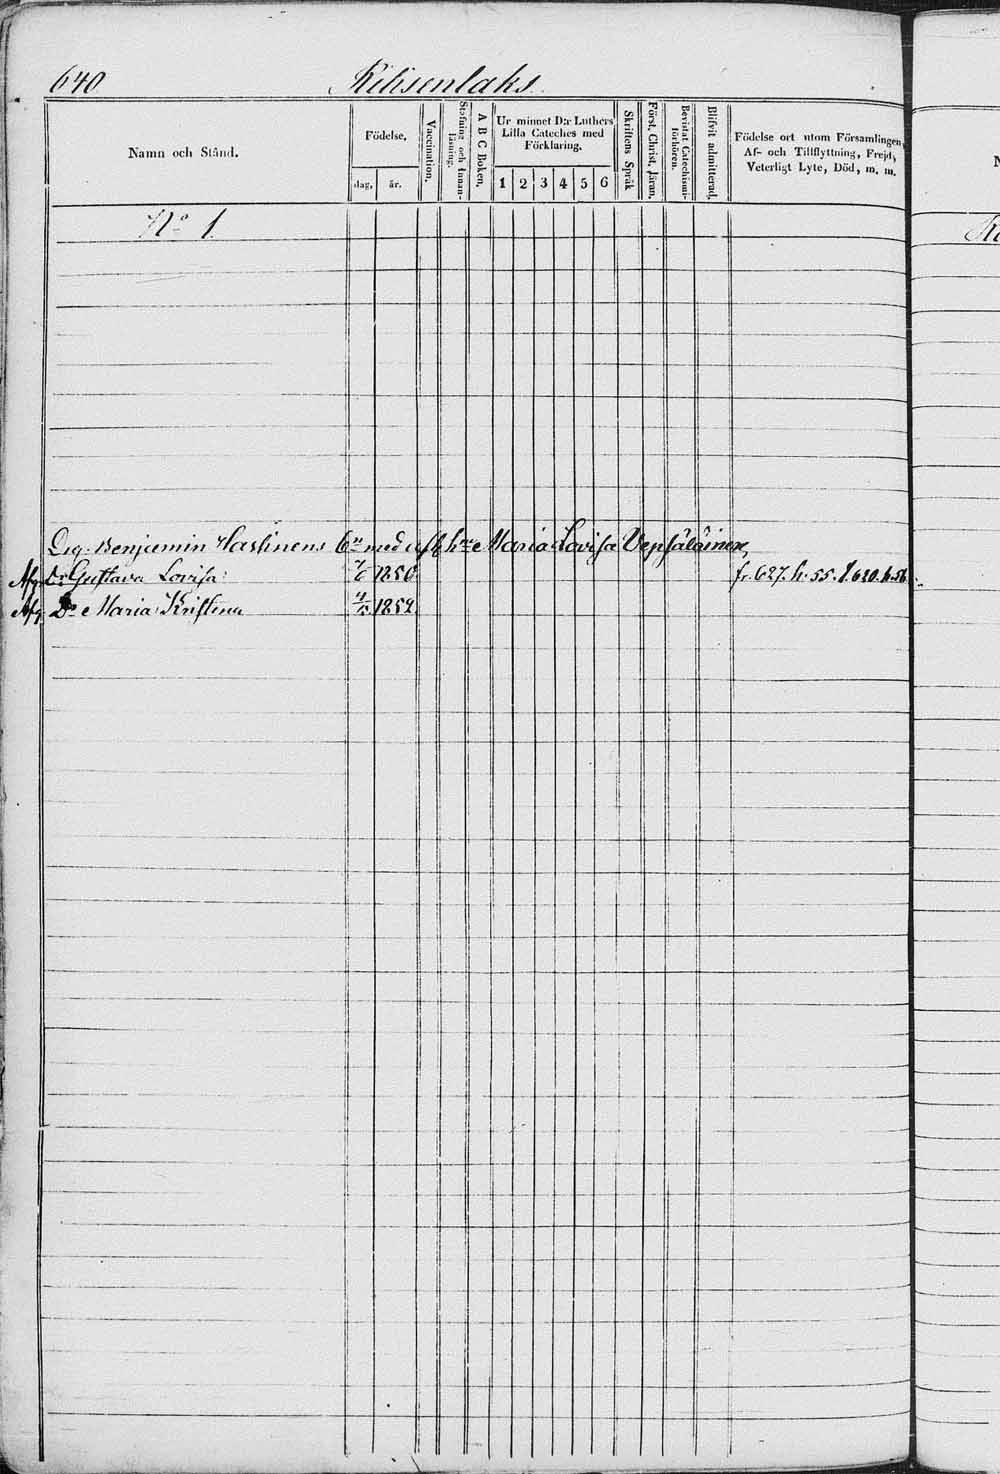 640 Riihisenlaks.
Namn och Stånd.
Födelse.
dag, år.
Vaccination.
Stafning och Innanläsning.
A B C Boken.
Ur minnet D:r Luthers
Lilla Cateches med
Förklaring.
1 2 3 4 5 6
Skriftens Språk
Först. Christ. läran.
Bevistat Catechismiförhören.
Blifvit admitterad.
Födelse ort utom Församlingen,
Af- och Tillflyttning, Frejd,
Veterligt Lyte, Död, m. m.
N:o 1.
Benjamin med Maria Lovisa Vepsäläinen,
Afg. Dr Gustava Lovisa: 7/6 1856 fr. 627. h. 55. t. 620. h. 56.
Afg. Dr Maria Kristina 1852